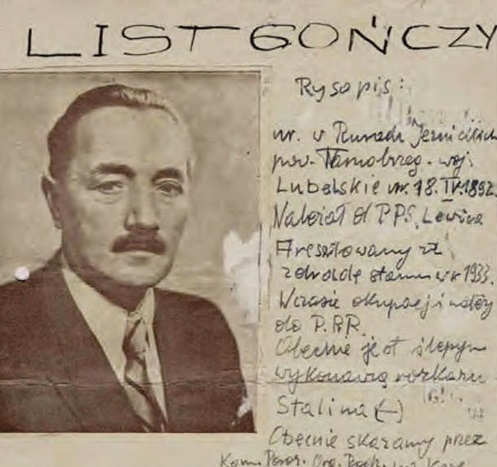 LIST GOŃCZY
Rysopis:
ur. w
pow. Tarnobrzeg. woj.
Lubelskie ur. 18. IV. 1892.
Należał do PPS, Lewica
Aresztowany za
zdradę stanu w r 1933.
Wczasie okupacji należy
do P.P.R.
Obecnie jest ślepym
wykonawcą rozkazu
Stalina (-)
Obecnie skazany przez